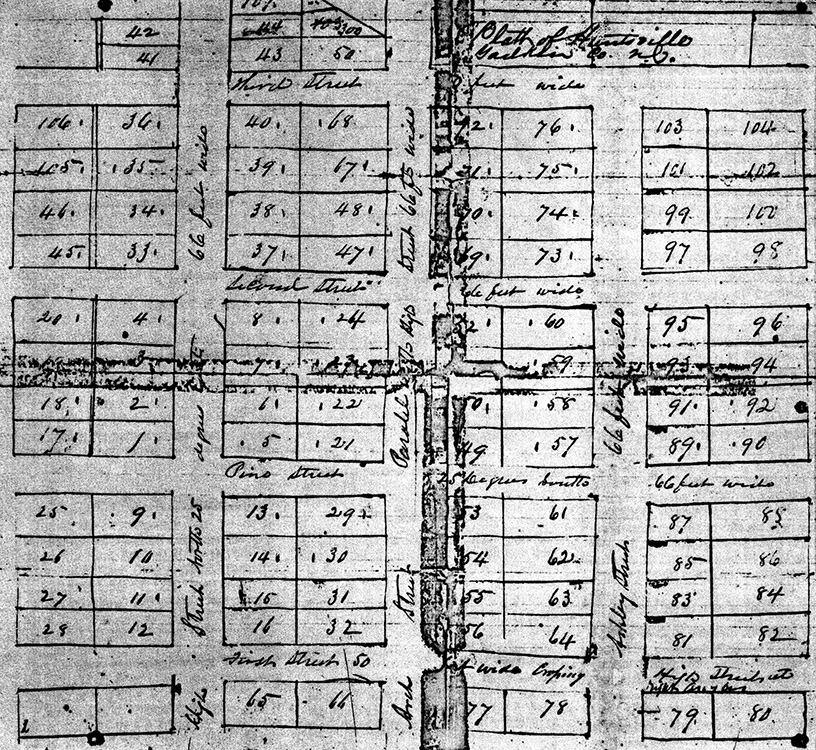 107.
42 44 300 Platt of Huntsville
41 43 50 Co. N.C.
Third Street feet wide
106. 36. 40. 68 72. 76. 103 104
105. 35 39. 67. 71. 75. 101 102
46. 34. 38. 48. 70. 74. 99 100
45. 33. 37. 47. 69. 73. 97 98
66 feet wide
Street 66 fts wide
Second Street 66 feet wide
20. 4. 8. 24 60 95 96
3 7. 23 59 93 94
18. 2. 6. 22 50. 58 91. 92
17. 1. 5 21 49 57 89. 90
66 feet wide
Paralel
Pine Street 25 Degrees South 66 feet wide
25 9. 13. 29. 53 61 87 88
26 10 14. 30 54 62. 85 86
27 11. 15 31 55 63 83 84
28 12 16 32 56 64 81 82
Street South 25
Street
Ashley Street
First Street 50 wide Croping High Street at
right angles
65 66 77 78 79 80
High
Arch